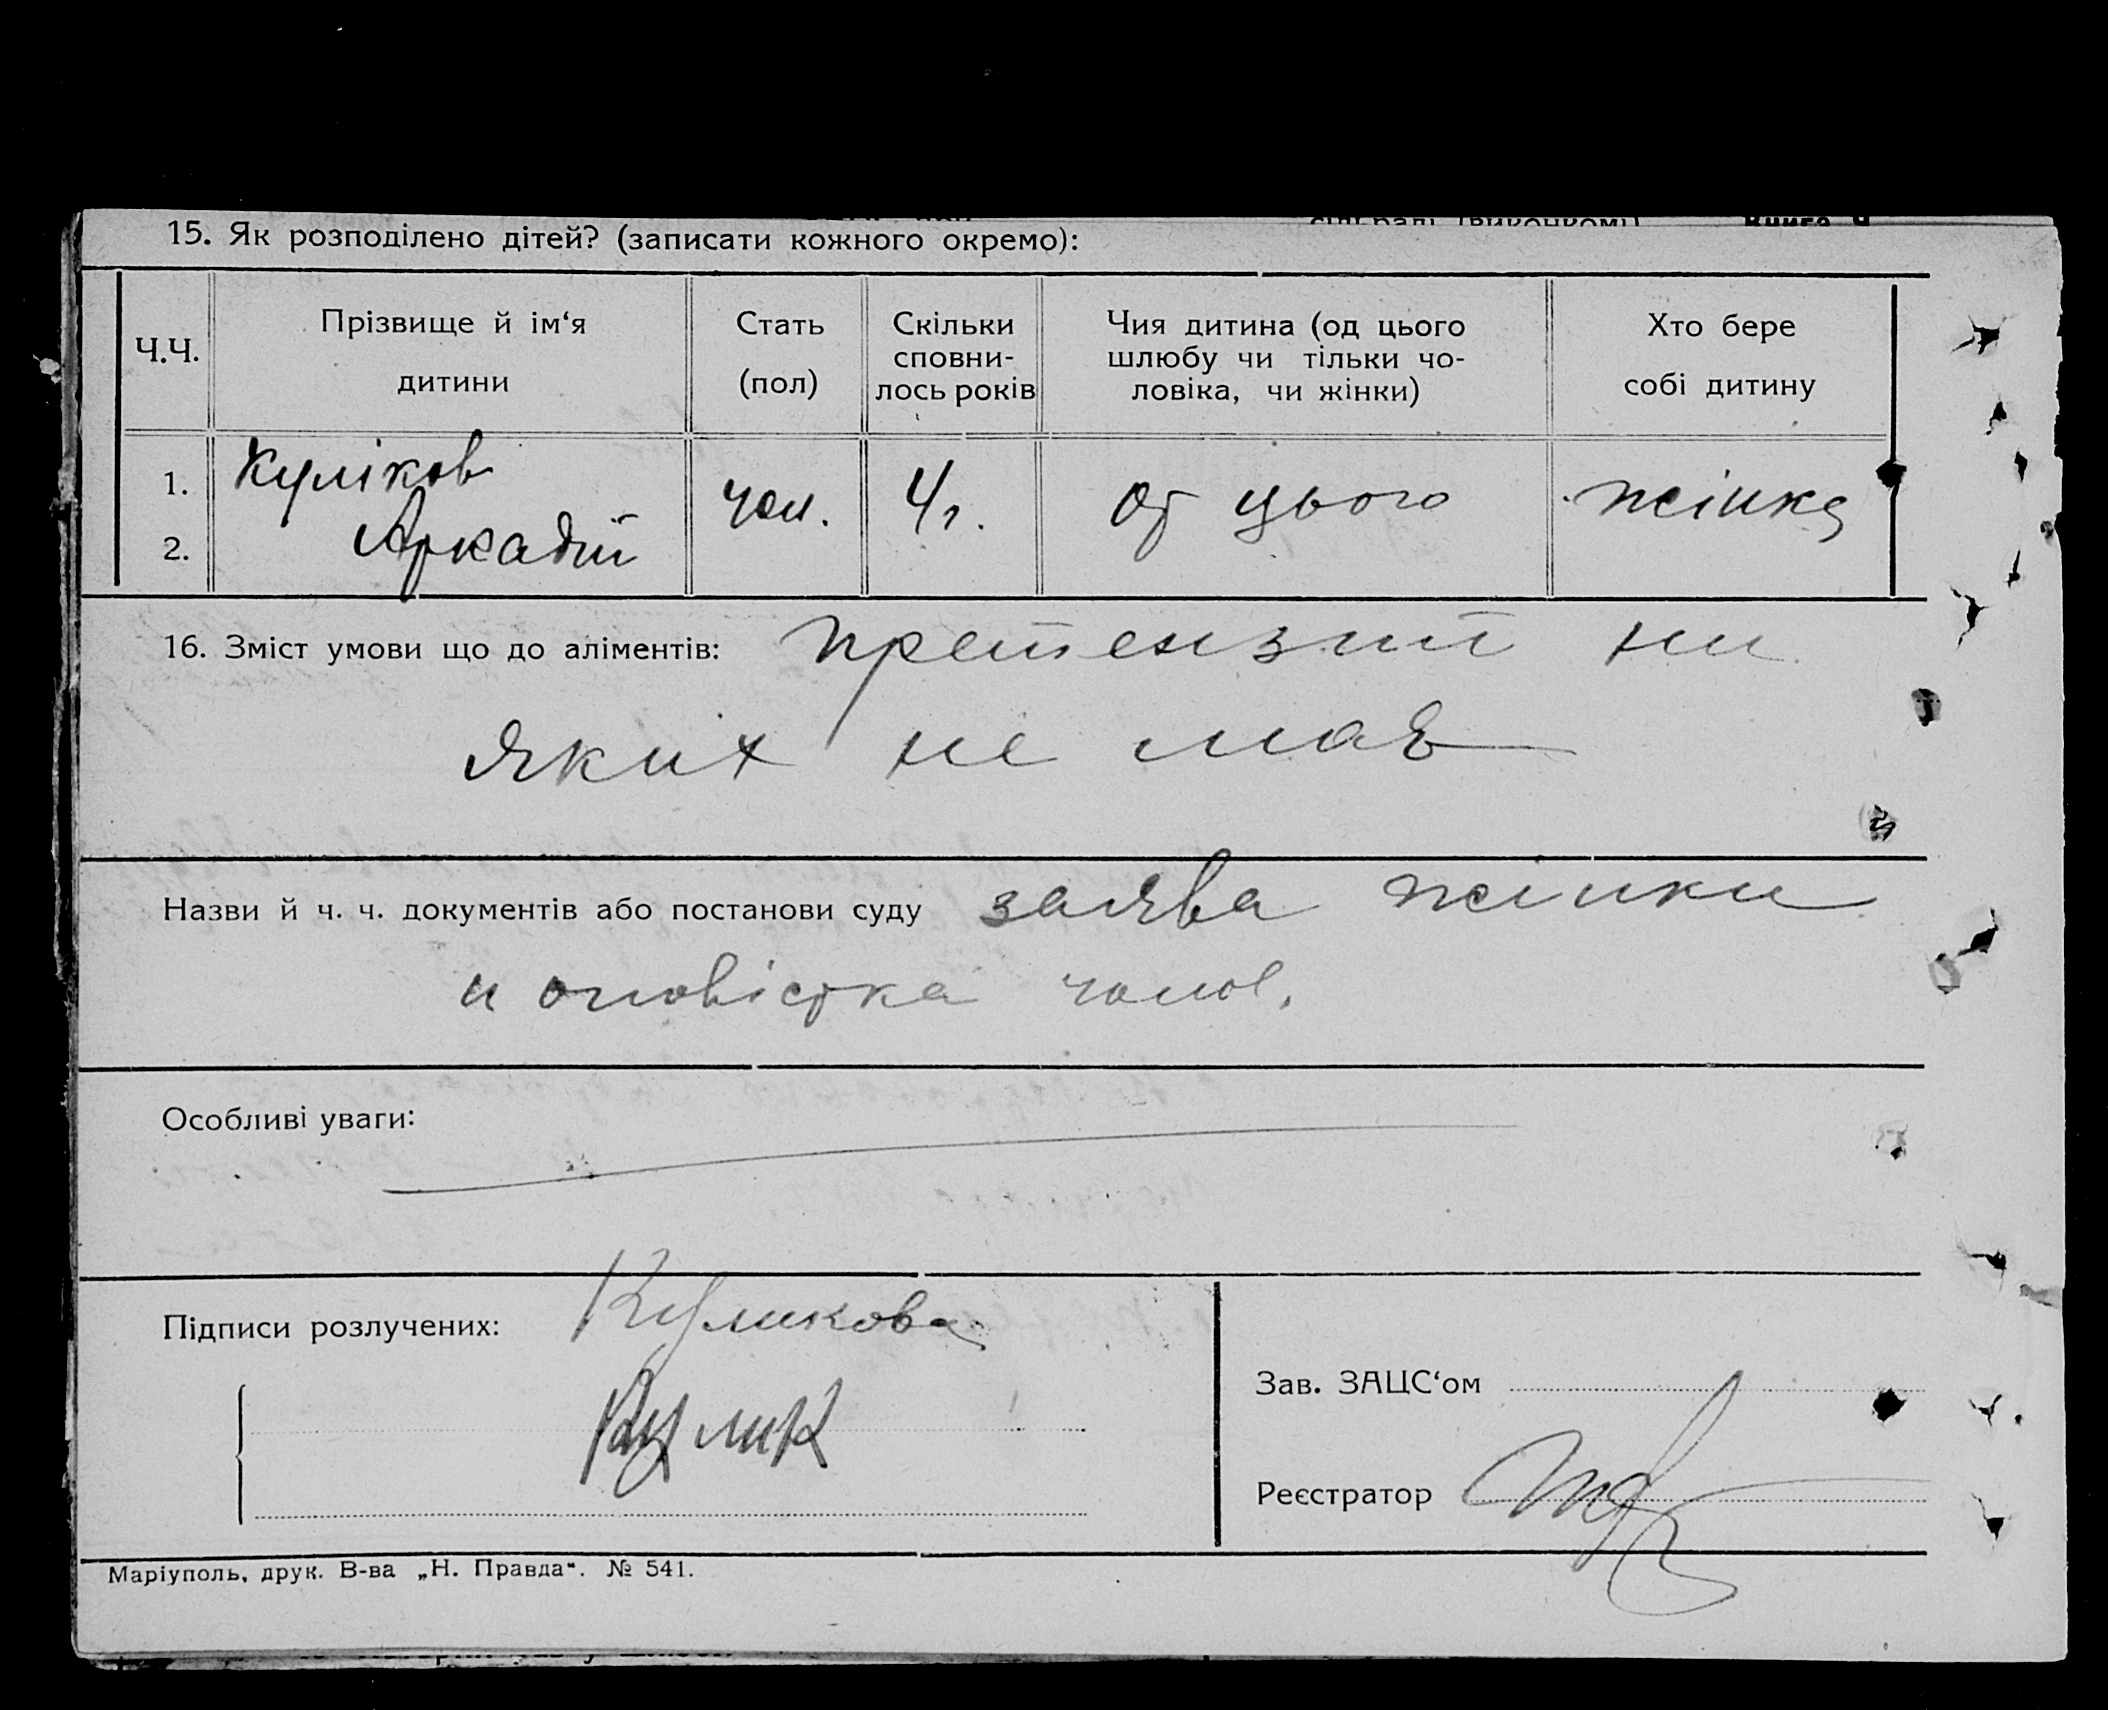 15. Як розподілено дітей? (записати кожного окремо):
Ч.Ч.
Прізвище й ім‘я
дитини
Стать
(пол)
Скільки
сповни-
лось років
Чия дитина (од цього
шлюбу чи тільки чо-
ловіка, чи жінки)
Хто бере
собі дитину
1. Куліков
2. Аркадій
чол.
4 г.
От цього
жінка
16. Зміст умови що до аліментів: претензий ни
яких не має
Назви й ч. ч. документів або постанови суду заява жінки
и оповістка чолов.
Особливі уваги:
Підписи розлучених: Куликова
Кулик
Зав. ЗАЦС‘ом
Реєстратор
Маріуполь, друк. В-ва „Н. Правда“. № 541.